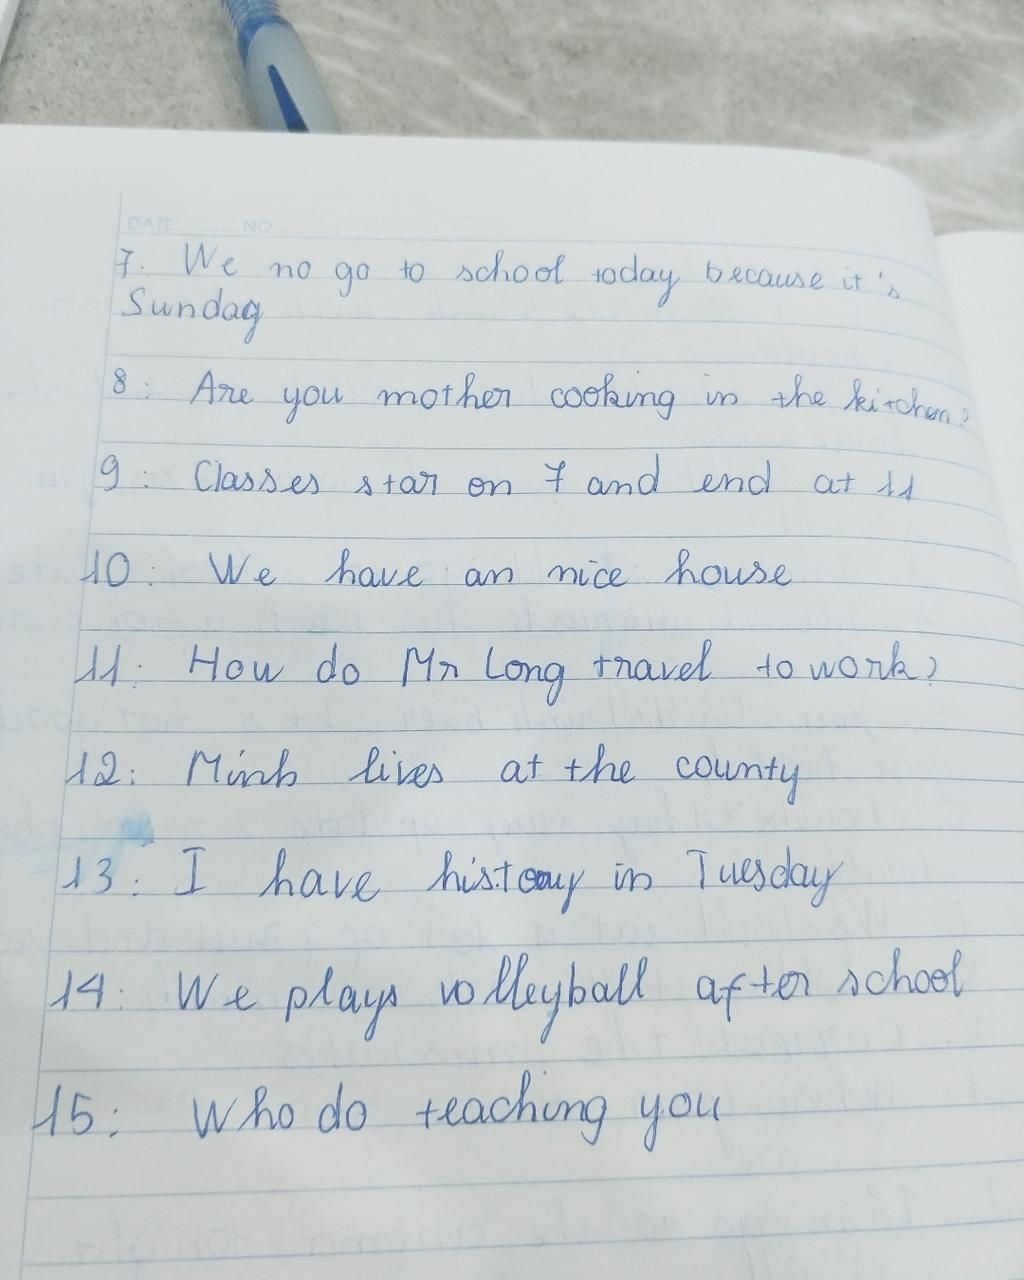 DATE.......... NO...............
7. We no go to school today because it's
Sunday
8: Are you mother cooking in the kitchen?
9: Classes star on 7 and end at 11
10: We have an nice house
11: How do Mr Long travel to work?
12: Minh lives at the county
13: I have history in Tuesday
14: We plays volleyball after school
15: Who do teaching you